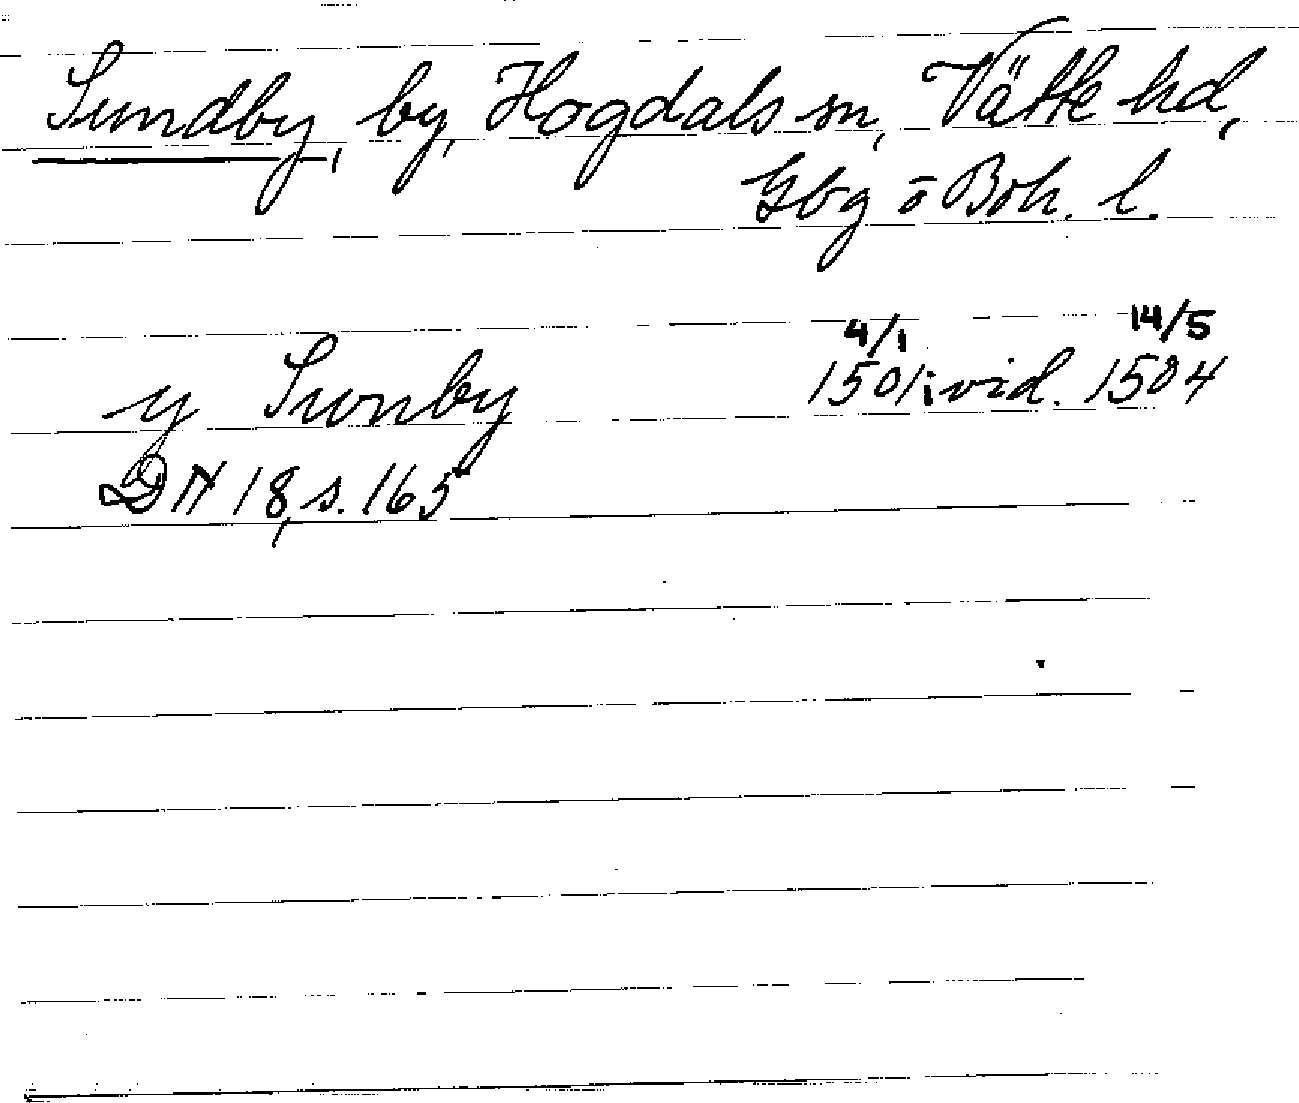 Sundby, by, Hogdals sn, Vätte hd,
Gbg o Boh. l.
4/1 14/5
y Sunby 1501 i vid. 1504
DN 18, s. 165